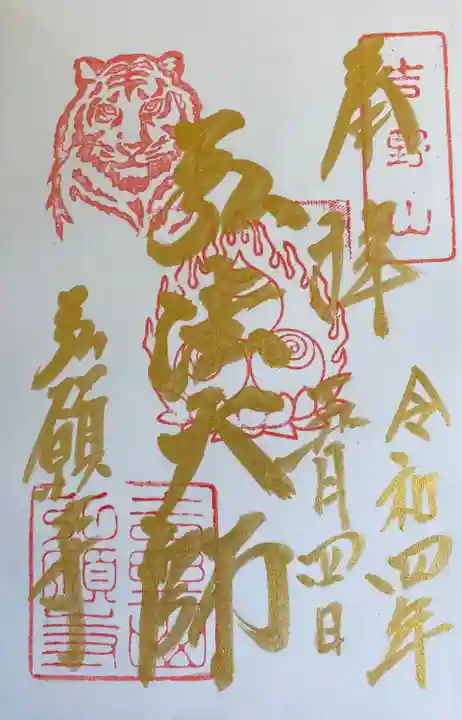 吉野山
奉拝
令和四年
五月四日
弘法大師
弘願寺